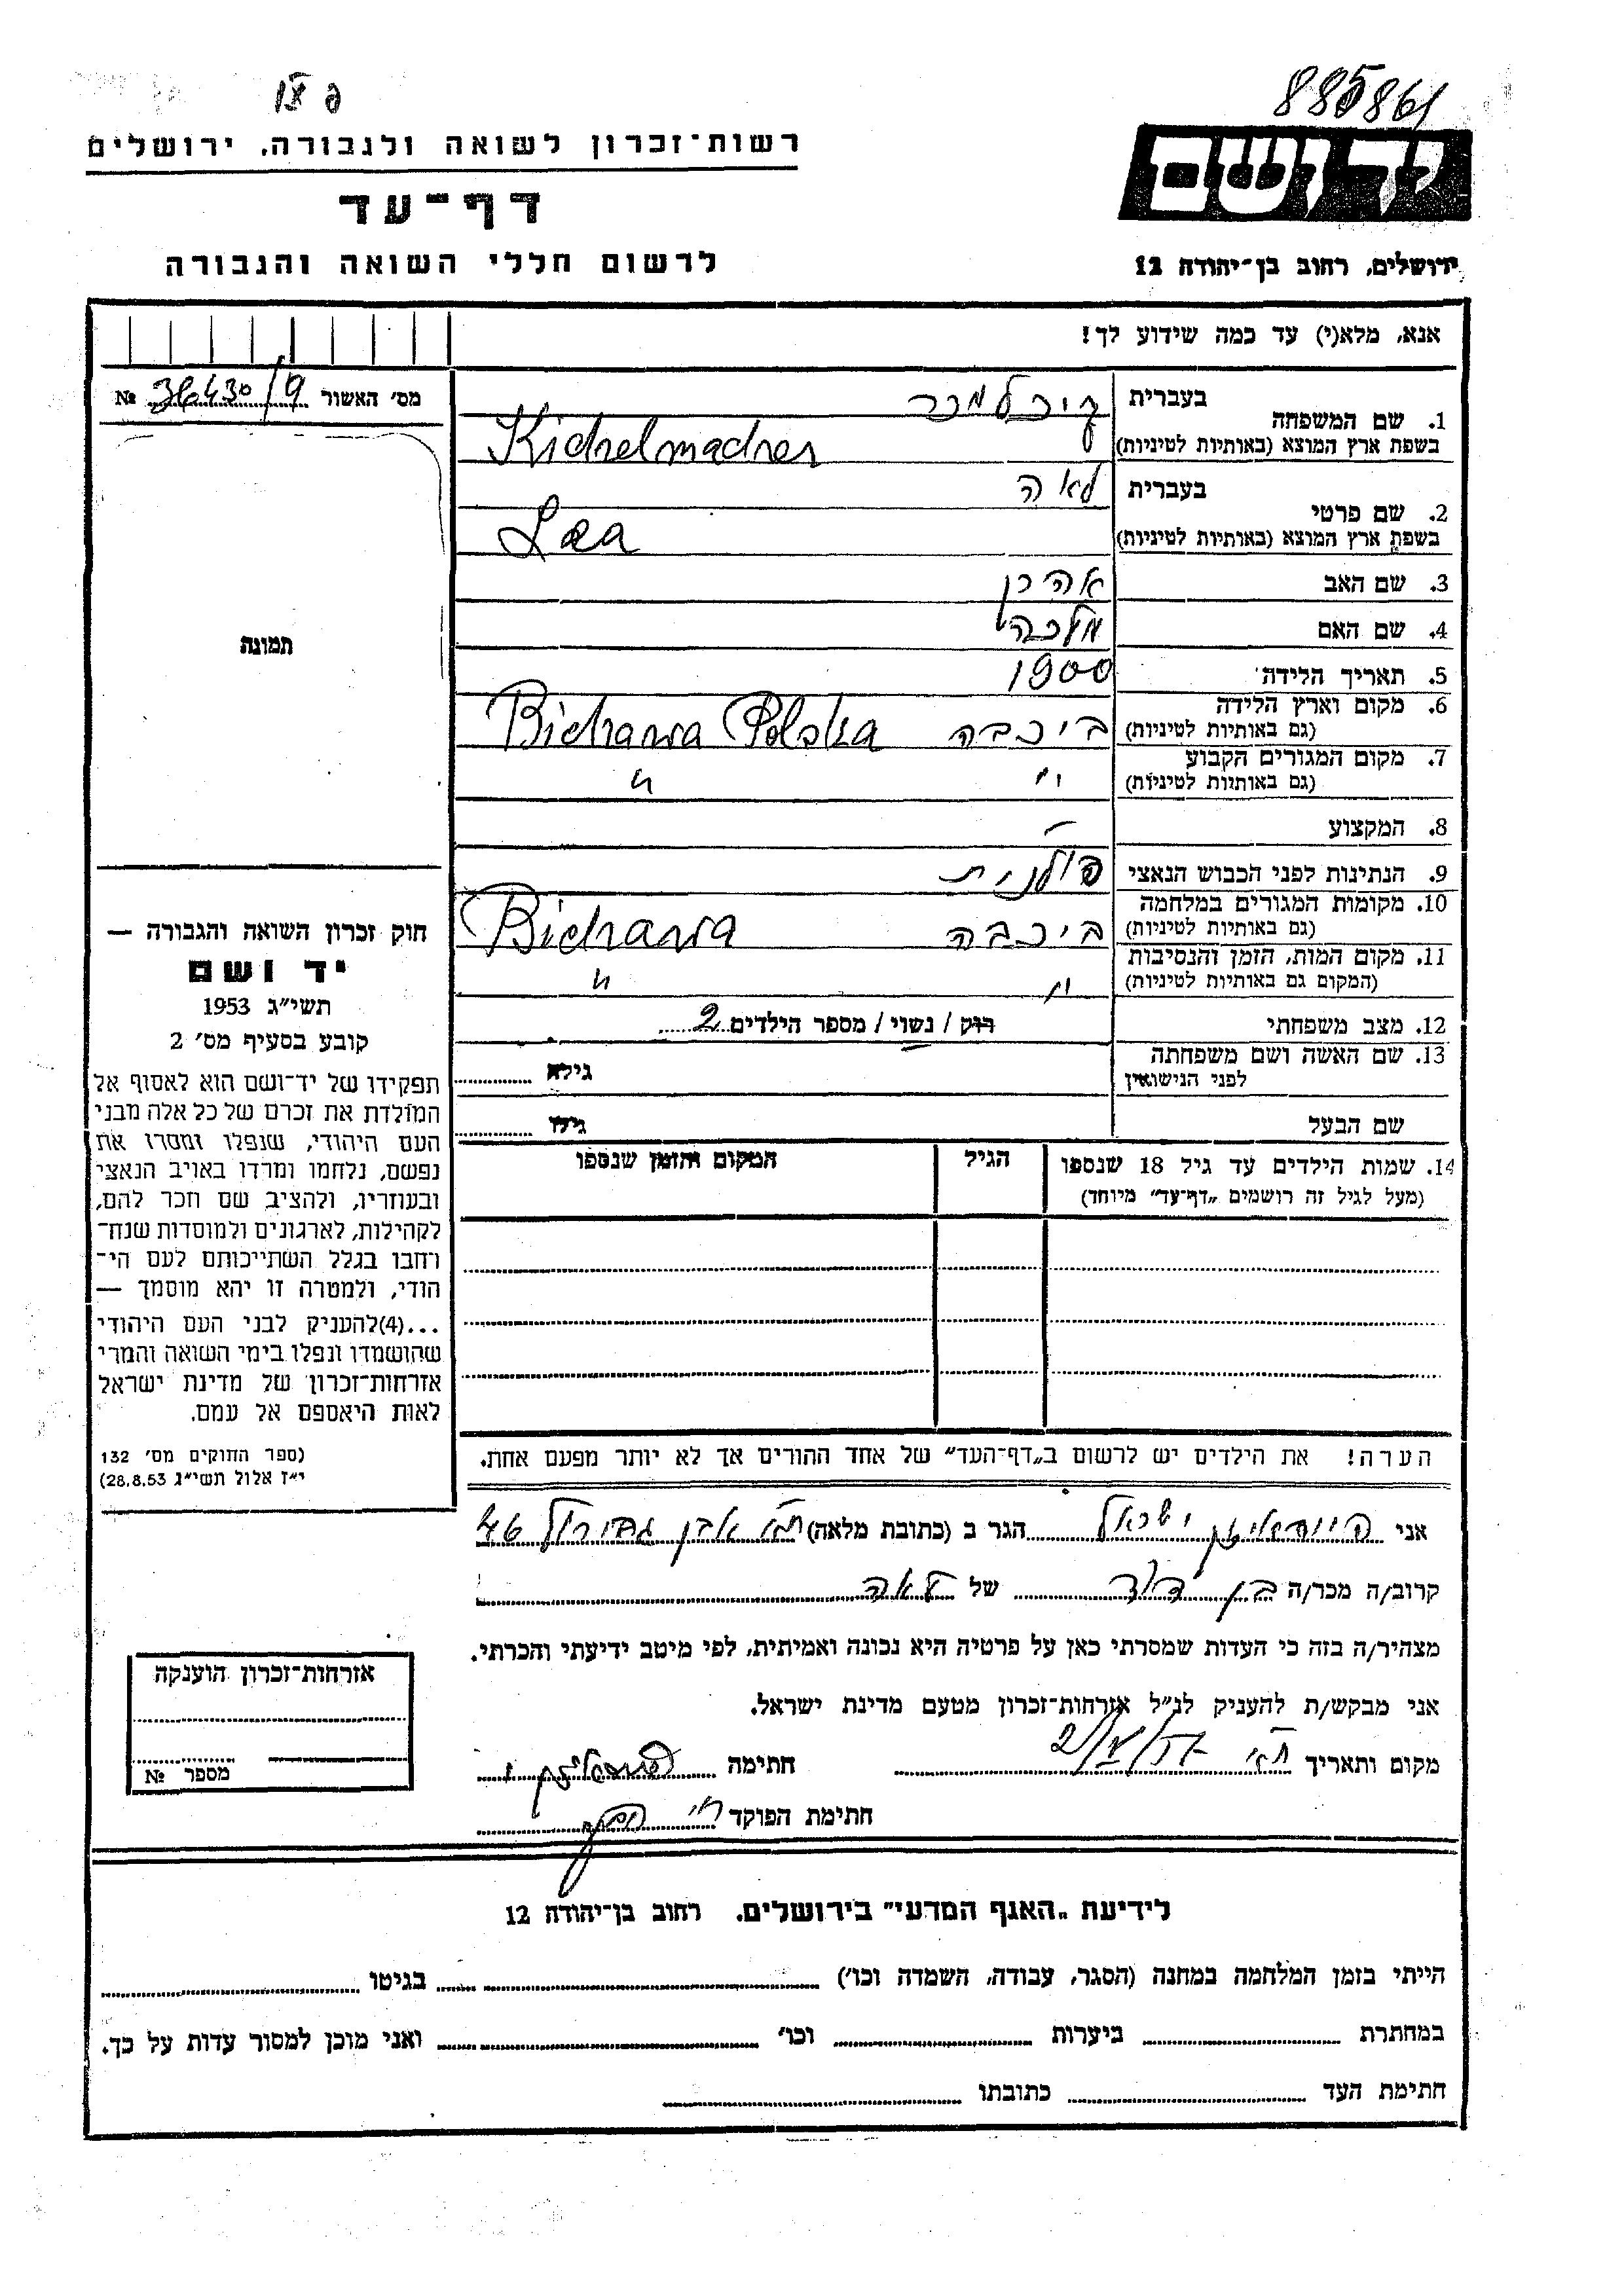 885861
רשות־זכרון לשואה ולגבורה. ירושלים
דף־עד
לרשום חללי השואה והגבורה
יד ושם
ירושלים. רחוב בן־יהודה 12
אנא, מלא(י) עד כמה שידוע לך!
מס׳ האשור 36430/9 №
תמונה
1. שם המשפחה
בעברית קיכלמכר
בשפת ארץ המוצא (באותיות לטיניות) Kichelmacher
2. שם פרטי
בעברית לאה
בשפת ארץ המוצא (באותיות לטיניות) Lea
3. שם האב אהרן
4. שם האם מלכה
5. תאריך הלידה 1900
6. מקום וארץ הלידה
(גם באותיות לטיניות) ביכבה Bichawa Polska
7. מקום המגורים הקבוע
(גם באותיות לטיניות) " "
8. המקצוע –
9. הנתינות לפני הכבוש הנאצי פולנית
10. מקומות המגורים במלחמה
(גם באותיות לטיניות) ביכבה Bichawa
11. מקום המות, הזמן והנסיבות
(המקום גם באותיות לטיניות) " "
12. מצב משפחתי רוק / נשוי / מספר הילדים 2
13. שם האשה ושם משפחתה
לפני הנישואין גילא
שם הבעל גילו
14. שמות הילדים עד גיל 18 שנספו הגיל המקום והזמן שנספו
(מעל לגיל זה רושמים „דף־עד״ מיוחד)
הערה! את הילדים יש לרשום ב„דף־העד״ של אחד ההורים אך לא יותר מפעם אחת.
חוק זכרון השואה והגבורה —
יד ושם
תשי״ג 1953
קובע בסעיף מס׳ 2
תפקידו של יד־ושם הוא לאסוף אל
המולדת את זכרם של כל אלה מבני
העם היהודי, שנפלו ומסרו את
נפשם, נלחמו ומרדו באויב הנאצי
ובעוזריו, ולהציב שם וזכר להם,
לקהילות, לארגונים ולמוסדות שנח־
רחבו בגלל השתייכותם לעם הי־
הודי, ולמטרה זו יהא מוסמך —
...(4)להעניק לבני העם היהודי
שהושמדו ונפלו בימי השואה והמרי
אזרחות־זכרון של מדינת ישראל
לאות היאספם אל עמם.
(ספר החוקים מס׳ 132
י״ז אלול תשי״ג 28.8.53)
אני ישראל הגר ב (כתובת מלאה) ת״א אבן גבירול
קרוב/ה מכר/ה בן דוד של לאה
מצהיר/ה בזה כי העדות שמסרתי כאן על פרטיה היא נכונה ואמיתית, לפי מיטב ידיעתי והכרתי.
אני מבקש/ת להעניק לנ״ל אזרחות־זכרון מטעם מדינת ישראל.
מקום ותאריך ת״א חתימה
חתימת הפוקד
אזרחות־זכרון הוענקה
מספר №
לידיעת „האגף המדעי״ בירושלים. רחוב בן־יהודה 12
הייתי בזמן המלחמה במחנה (הסגר, עבודה, השמדה וכו׳) בגיטו
במחתרת ביערות וכו׳ ואני מוכן למסור עדות על כך.
חתימת העד כתובתו